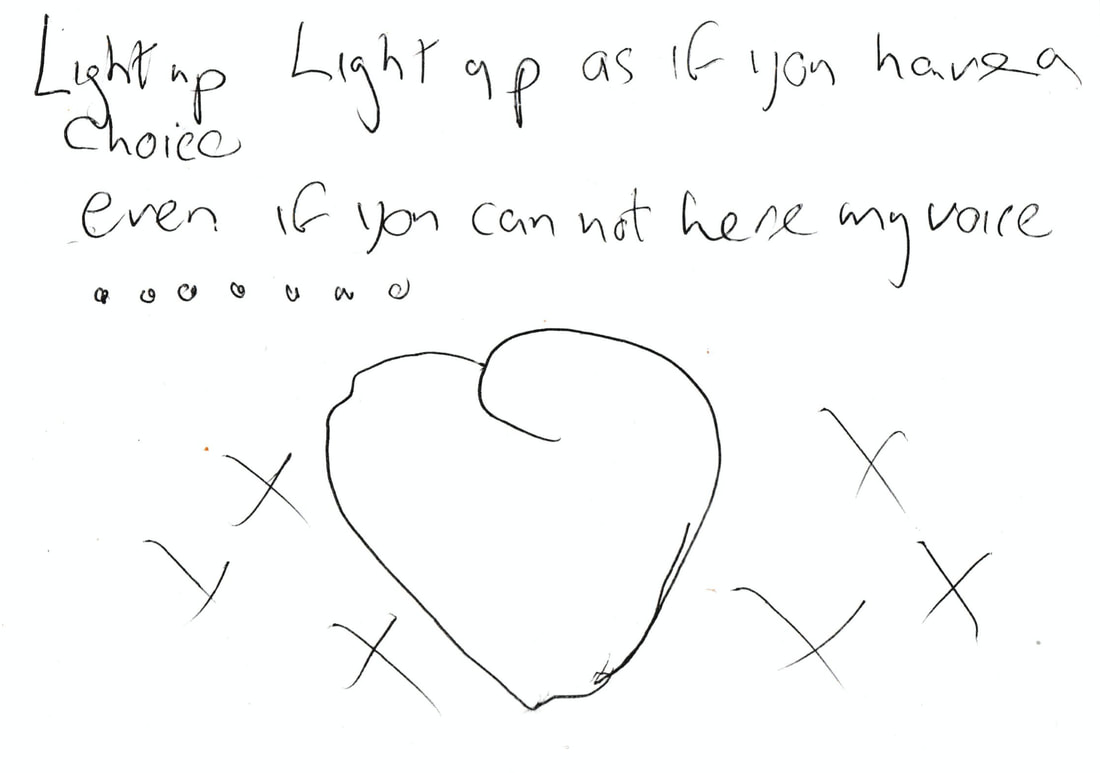 Light up Light up as if you have a
choice
even if you can not here my voice